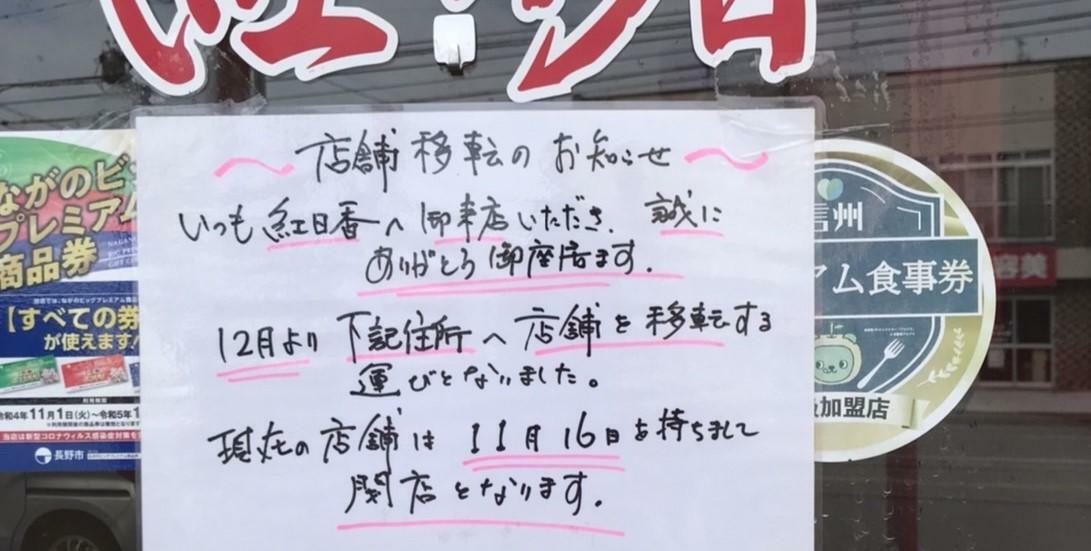 店舗移転のお知らせ
いつも紅日香へ御来店いただき、誠に
ありがとう御座居ます。
12月より下記住所へ店舗を移転する
運びとなりました。
現在の店舗は11月16日を持ちまして
閉店となります。
ながのビッ
プレミアム
商品券
【すべての券
が使えます
令和4年11月1日(火)～令和5年1
当店は新型コロナウィルス感染症対策を
長野市
信州
アム食事券
加盟店
容美